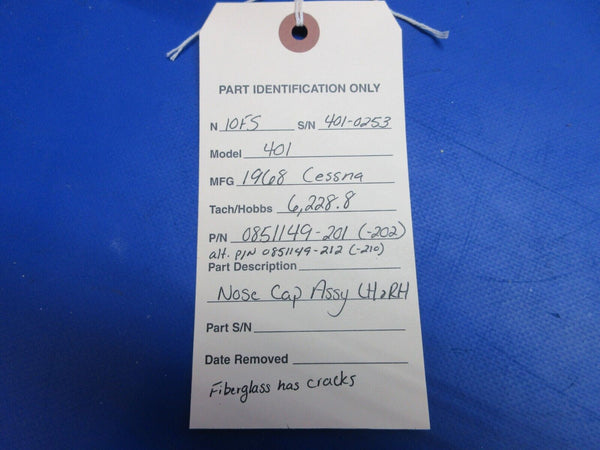 PART IDENTIFICATION ONLY
N 10FS S/N 401-0253
Model 401
MFG 1968 Cessna
Tach/Hobbs 6,228.8
P/N 0851149-201 (-202)
alt. P/N 0851149-212 (-210)
Part Description
Nose Cap Assy LH & RH
Part S/N
Date Removed
Fiberglass has cracks